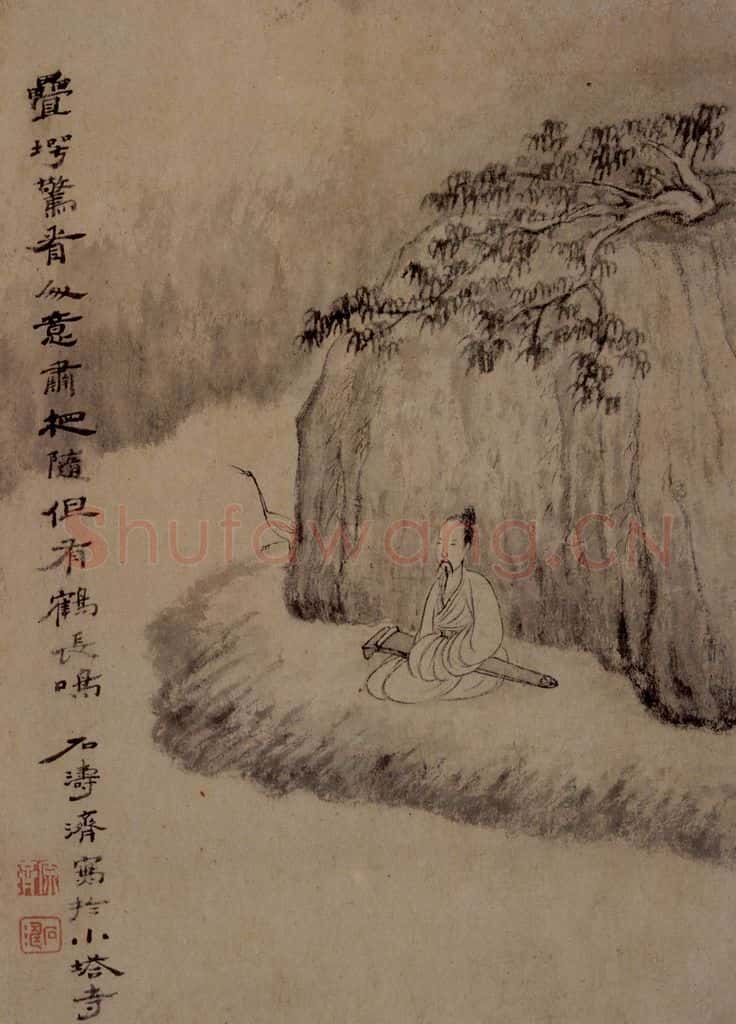 疊堮驚看以意肅把隨但有鶴長鳴 石濤濟寫於小塔寺
原濟
石濤
Shufawang.CN